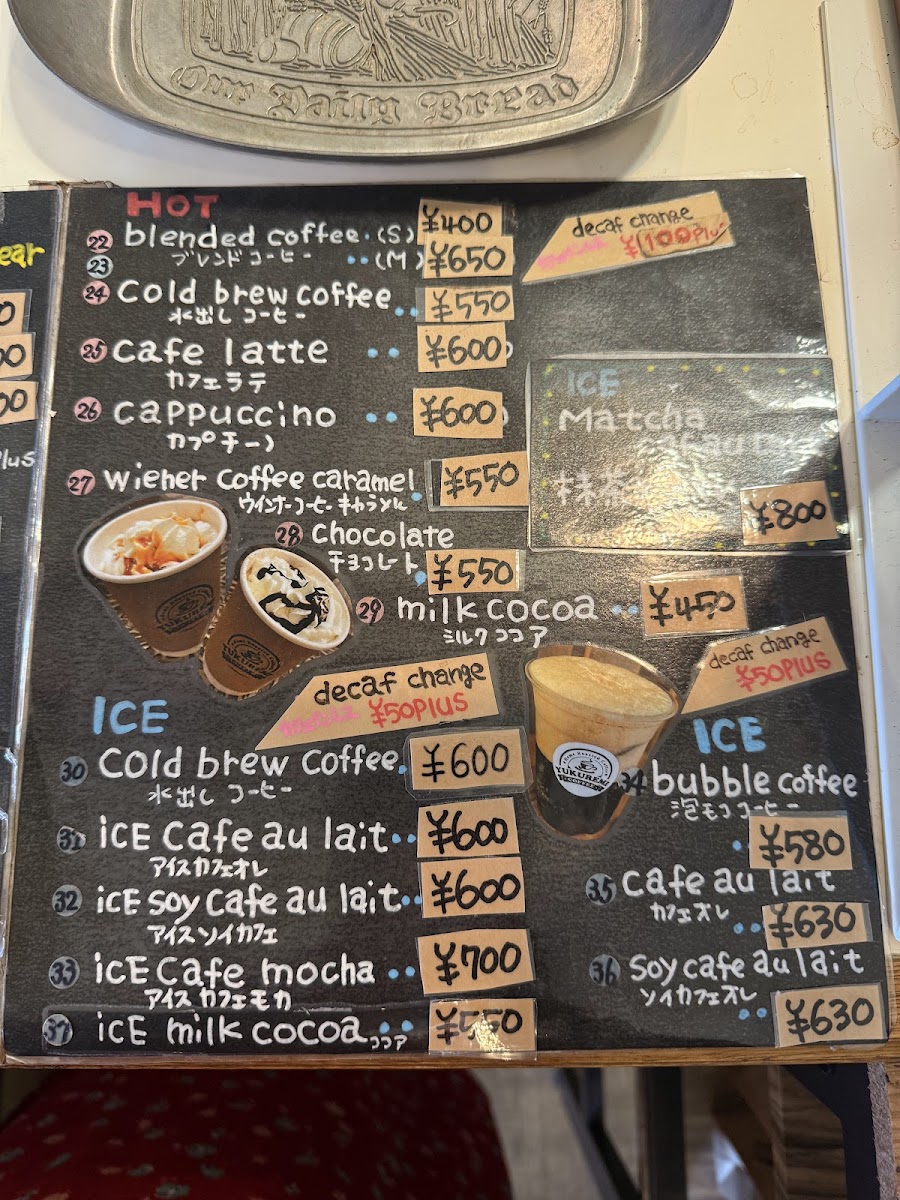 Our Daily Bread
ear
0
00
00
Plus
HOT
22 blended coffee (S) ¥400
23 ブレンドコーヒー (M) ¥650
24 cold brew coffee ¥550
水出しコーヒー
25 cafe latte ¥600
カフェラテ
26 cappuccino ¥600
カプチーノ
27 wiener coffee caramel ¥550
ウインナーコーヒーキャラメル
28 chocolate
チョコレート ¥550
29 milk cocoa ¥450
ミルクココア
decaf change
¥100Plus
ICE
Matcha
抹茶
¥800
decaf change
¥50Plus
ICE
30 cold brew coffee ¥600
水出しコーヒー
31 iCE cafe au lait ¥600
アイスカフェオレ
32 iCE soy cafe au lait ¥600
アイスソイカフェ
33 iCE cafe mocha ¥700
アイスカフェモカ
37 iCE milk cocoa ココア ¥550
decaf change
¥50Plus
YUKUREMI
COFFEE
ICE
34 bubble coffee
泡モココーヒー
¥580
35 cafe au lait
カフェオレ ¥630
36 soy cafe au lait
ソイカフェオレ
¥630